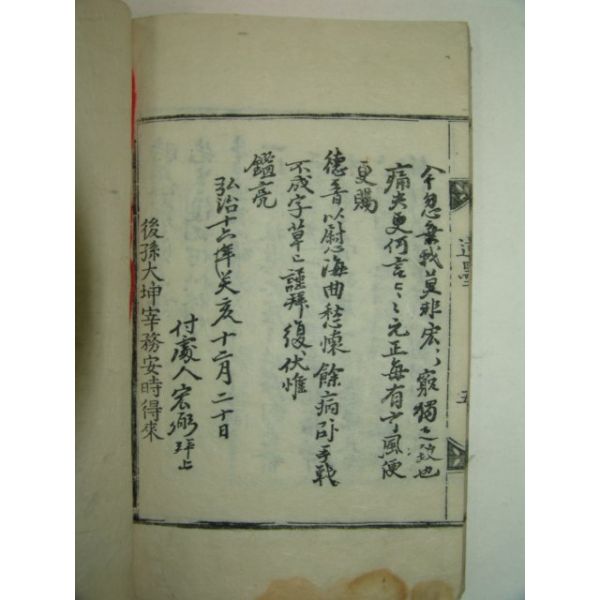 今忽棄我莫非宏〻窮獨之致也
痛哭更何言〻〻元正每有字風便
更賜
德音以慰海曲愁懷餘病卧手戰
不成字草〻謹拜復伏惟
鑑亮
弘治十六年癸亥十二月二十日
付處人宏弼拜上
後孫大坤宰務安時得來
遺墨
五